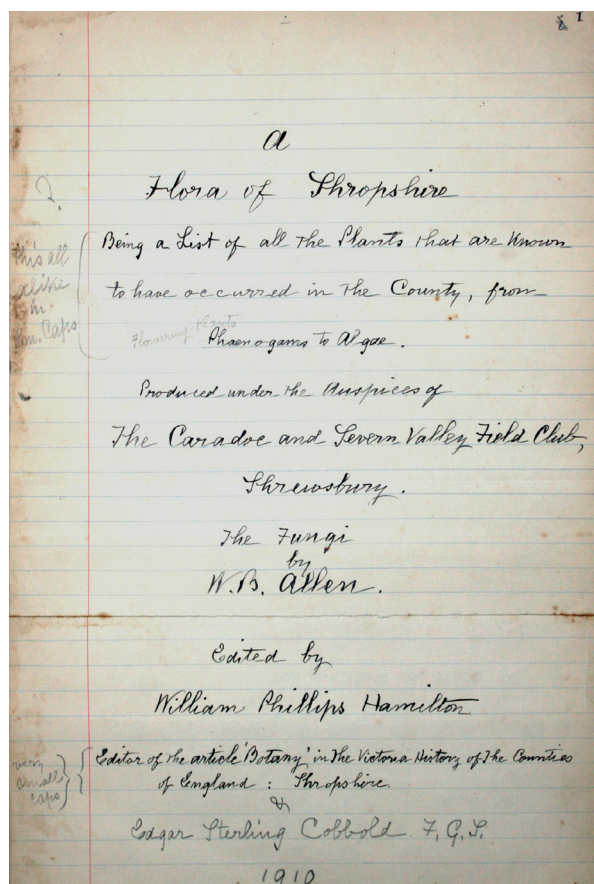 1
A
Flora of Shropshire
?
Being a List of all the Plants that are known
This all
alike
in
Sm. Caps
to have occurred in the County, from
Flowering-plants
Phaenogams to Algae.
Produced under the Auspices of
The Caradoc and Severn Valley Field Club,
Shrewsbury.
The Fungi
by
W. B. Allen.
Edited by
William Phillips Hamilton
very
small
caps
Editor of the article 'Botany' in the Victoria History of the Counties
of England : Shropshire.
&
Edgar Sterling Cobbold. F. G. S.
1910